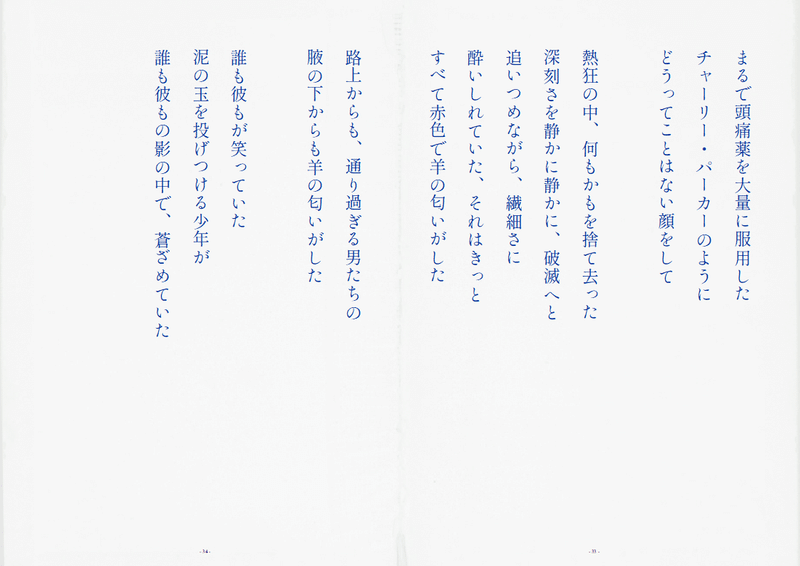 まるで頭痛薬を大量に服用した
チャーリー・パーカーのように
どうってことはない顔をして
熱狂の中、何もかもを捨て去った
深刻さを静かに静かに、破滅へと
追いつめながら、繊細さに
酔いしれていた、それはきっと
すべて赤色で羊の匂いがした
路上からも、通り過ぎる男たちの
腋の下からも羊の匂いがした
誰も彼もが笑っていた
泥の玉を投げつける少年が
誰も彼もの影の中で、蒼ざめていた